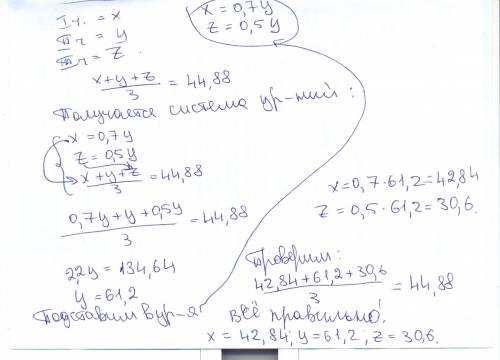 I ч. = x
II ч = y
III ч = z.
x = 0,7y
z = 0,5y
x+y+z / 3 = 44,88
Получается система ур-ний:
x = 0,7y
z = 0,5y
x+y+z / 3 = 44,88
0,7y+y+0,5y / 3 = 44,88
2,2y = 134,64
y = 61,2
Подставим в ур-я
x = 0,7·61,2 = 42,84
z = 0,5·61,2 = 30,6.
Проверим:
42,84+61,2+30,6 / 3 = 44,88
всё правильно!
x = 42,84; y = 61,2; z = 30,6.